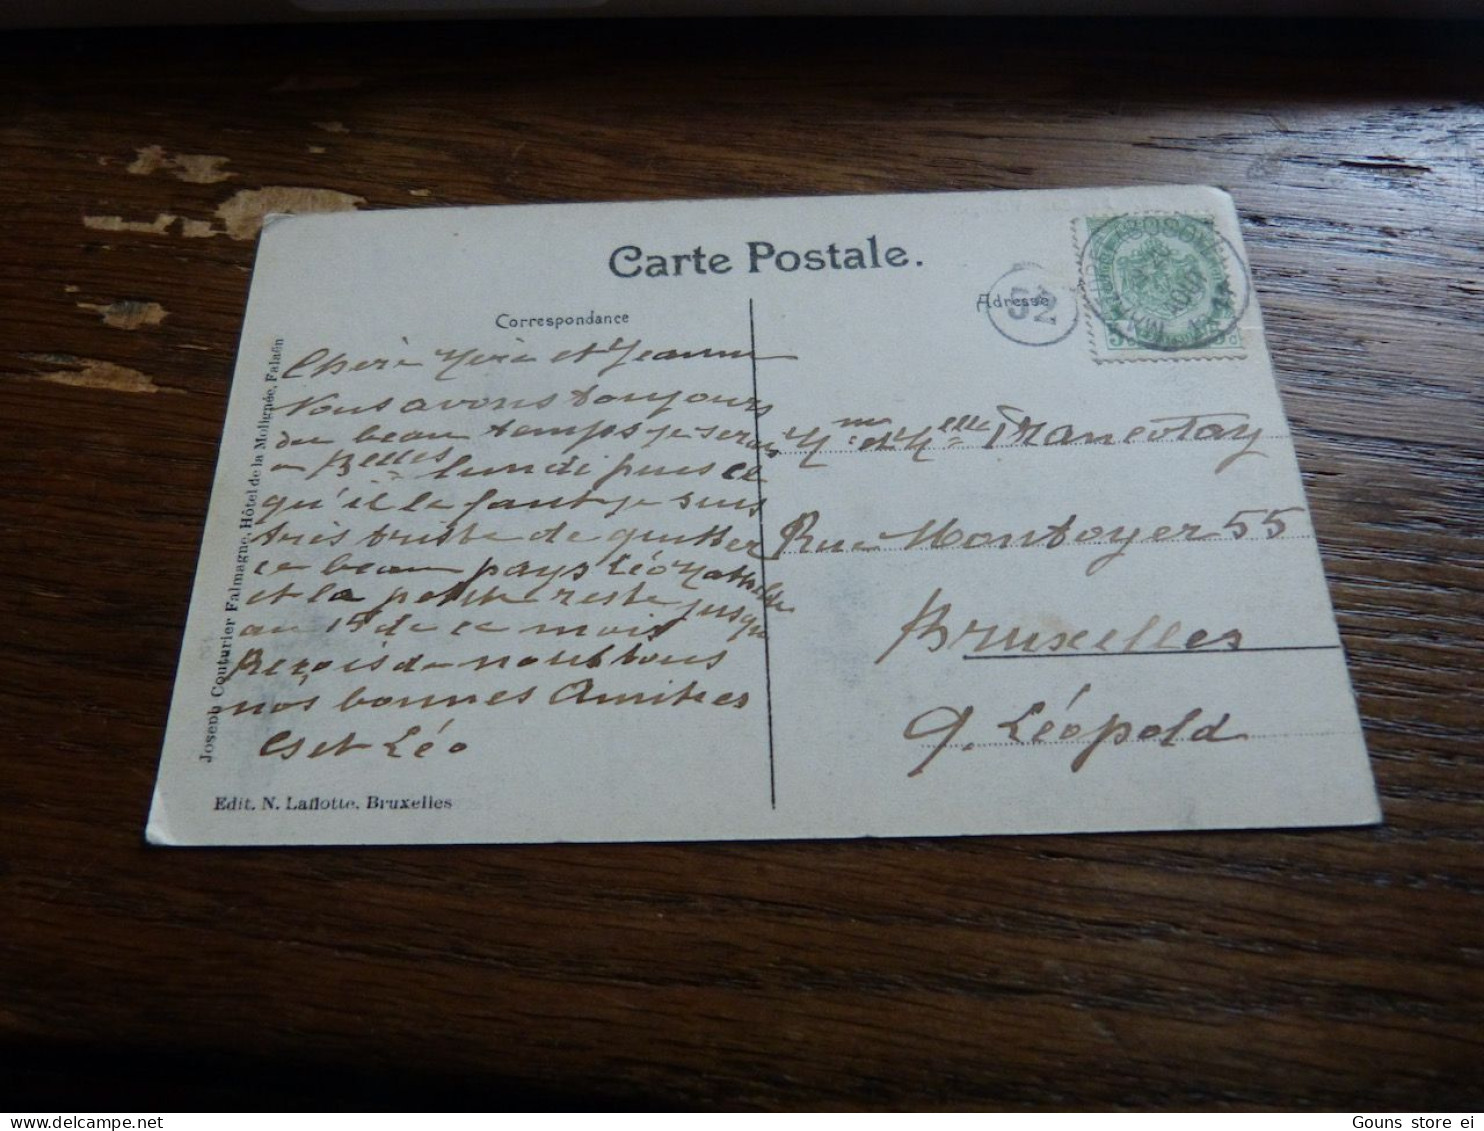 Carte Postale.
Correspondance
Adresse
Chère Mère et Jeanne
Nous avons toujours
du beau temps je serai
a Bxelles lundi puis ce
qu'il le faut je suis
très triste de quitter
ce beau pays Léo Mathilde
et la petite reste jusqu
au 15 de ce mois
Reçois de nous tous
nos bonnes Amitiés
Léo
Joseph Couturier Falmagne, Hôtel de la Molignée, Falaën
Edit. N. Laflotte, Bruxelles
Mme et Melle
Rue Montoyer 55
Bruxelles
Q. Léopold
Gouns store ei